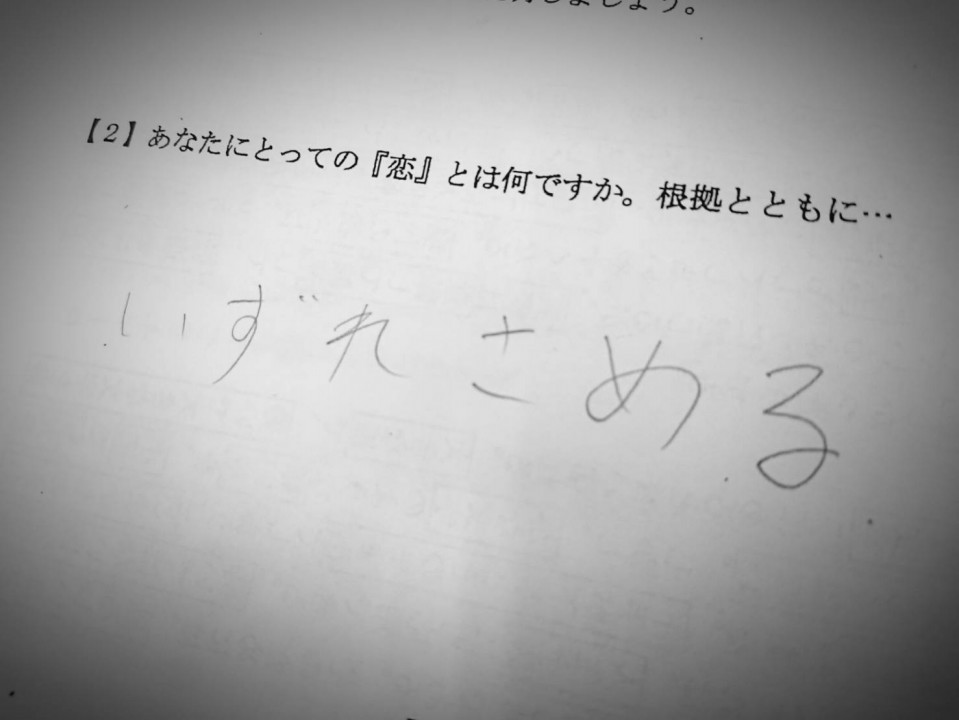 しましょう。
【2】あなたにとっての『恋』とは何ですか。根拠とともに…
いずれさめる